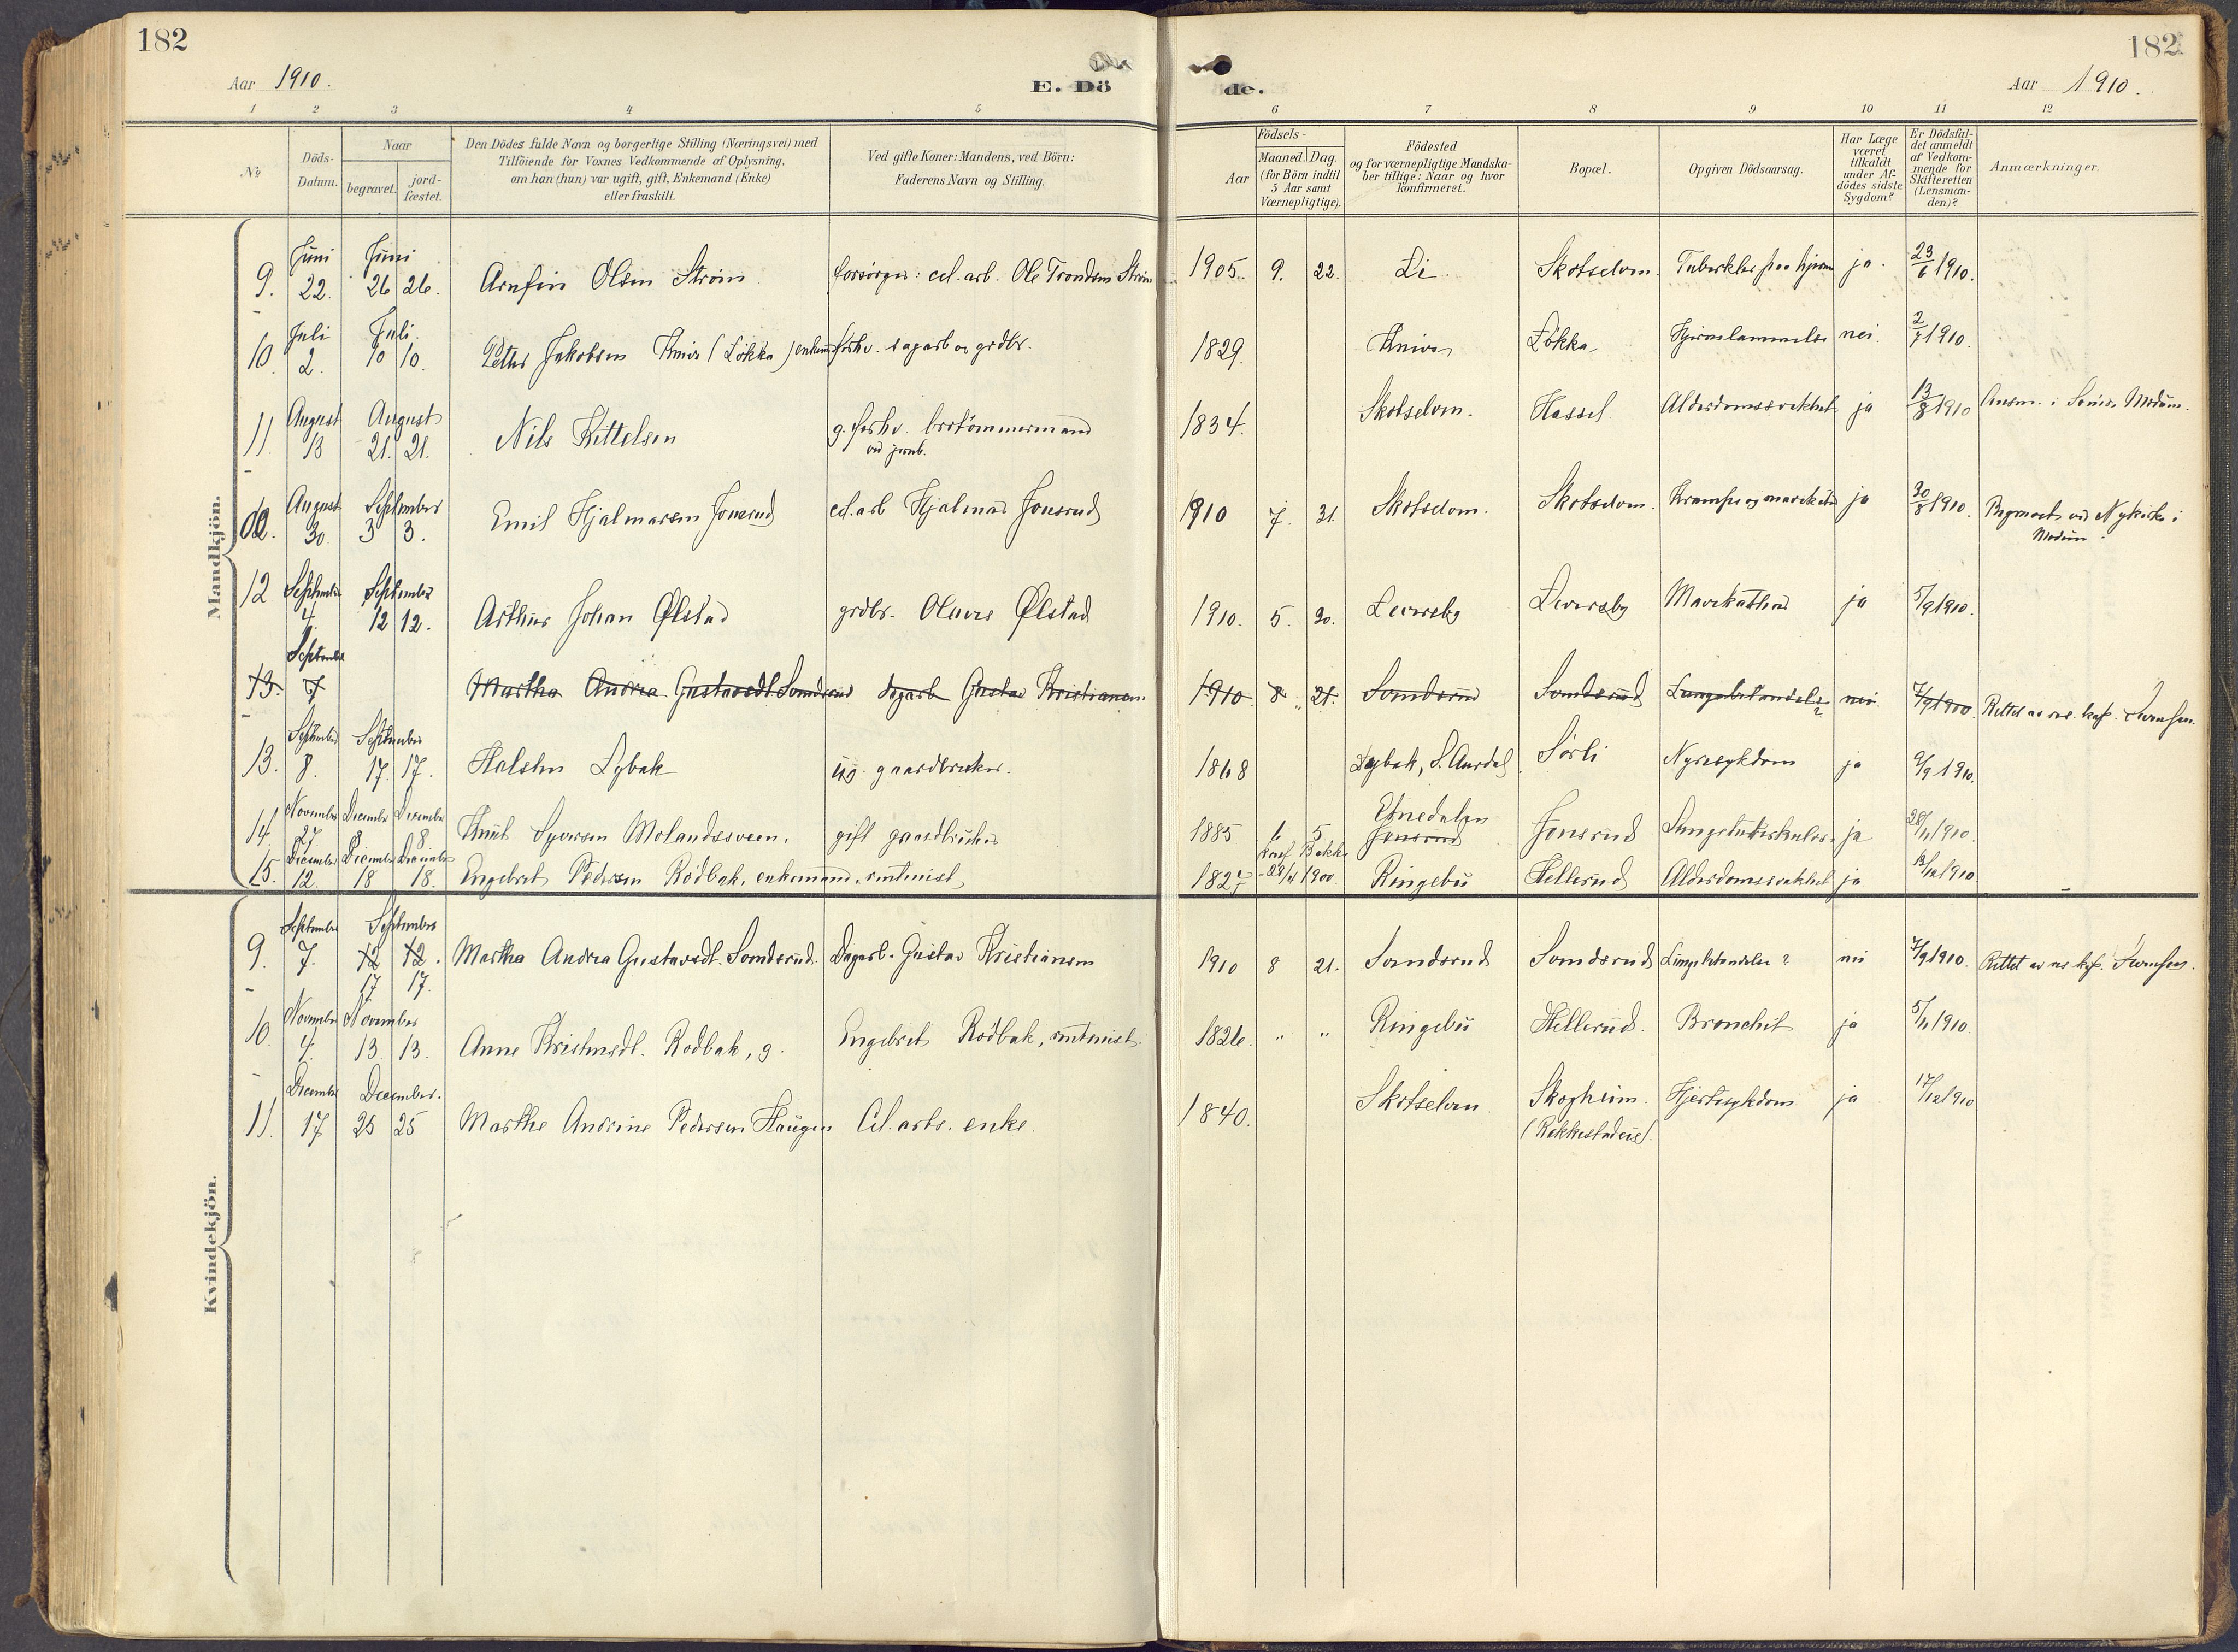 182
182
Aar 1910.
E. Dö
de.
Aar 1910.
1 2 3 4 5 6 7 8 9 10 11 12
No
Döds-
Datum.
Naar
begravet.
jord-
fæstet.
Den Dödes fulde Navn og borgerlige Stilling (Næringsvei) med
Tilföiende for Voxnes Vedkommende af Oplysning,
om han (hun) var ugift, gift, Enkemand (Enke)
eller fraskilt.
Ved gifte Koner: Mandens, ved Börn:
Faderens Navn og Stilling.
Födsels-
Aar
Maaned. Dag.
(for Börn indtil
5 Aar samt
Værnepligtige).
Födested
og for værnepligtige Mandska-
ber tillige: Naar og hvor
konfirmeret.
Bopæl.
Opgiven Dödsaarsag.
Har Læge
været
tilkaldt
under Af-
dödes sidste
Sygdom?
Er Dödsfal-
det anmeldt
af Vedkom-
mende for
Skifteretten
(Lensman-
den)?
Anmærkninger.
Mandkjön.
Juni Juni
9. 22. 26 26. Arnfin Olsen Strøm forsørger: cel. arb. Ole Trondsen Strøm 1905. 9. 22. Li. Skotselven. ja. 23/6 1910.
Juli Juli.
10. 2. 10 10. Petter Jakobsen Kniva (Løkka) enkem. forhv. sagarb og grdbr. 1829. Kniva Løkka nei. 2/7 1910.
August August
11. 13 21. 21. Nils Kittelsen g. forhv. brotømmermand 1834. Skotselven. Hassel. Alderdomssvakhet ja 13/8 1910
ved jernb.
August September
30. 3 3. Emil Hjalmarsen Jonsrud cel. arb Hjalmar Jonsrud 1910 7. 31. Skotselven. Skotselven. ja 30/8 1910. Begravet ved Nykirke i
Modum.
September September
12 4. 12 12. Arthur Johan Ølstad grdbr. Olaves Ølstad 1910. 5. 30. Leversby Leversby Mavekatharr ja 5/9 1910.
September
13. 7 Martha Andrea Gustavsdt. Somdrud dagarb Gustav Kristiansen 1910 8 21. Somdrud Somdrud Lungebetændelse? nei. 7/9 1900. Rettet av res. kap. Svensen.
September September
13. 8. 17. 17. Halsten Lybak ug. gaardbruker. 1868 Lybak, S. Aurdal. Sørli Nyresykdom ja 9/9 1910.
November December December
14. 27 8 8 Knut Syversen Molandssveen. gift gaardbruker 1885 6 5 Etnedalen Jonsrud Jonsrud Lungetuberkulose ja 28/11 1910.
December December December
15. 12. 18 18. Engebret Pedersen Rødbak, enkemand. 1827 Ringebu Hellerud Alderdomssvakhet ja 13/12 1910
Kvindekjön.
September September
9. 7. 12 12. Martha Andrea Gustavsdt. Somdrud. Dagarb. Gustav Kristiansen 1910 8 21. Somdrud Somdrud Lungebetændelse? nei 7/9 1910. Rettet av res kap. Svensen.
17 17.
November November
10. 4. 13. 13. Anne Kristensdt. Rødbak, g. Engebret Rødbak, 1826. " " Ringebu Hellerud. Bronchit ja 5/11 1910.
December December.
11. 17 25 25 Marthe Andrine Pedersen Haugen Cel. arbs. enke. 1840. Skotselven. Skogheim. Hjertesykdom ja 17/12 1910
(Rekkestadeie).